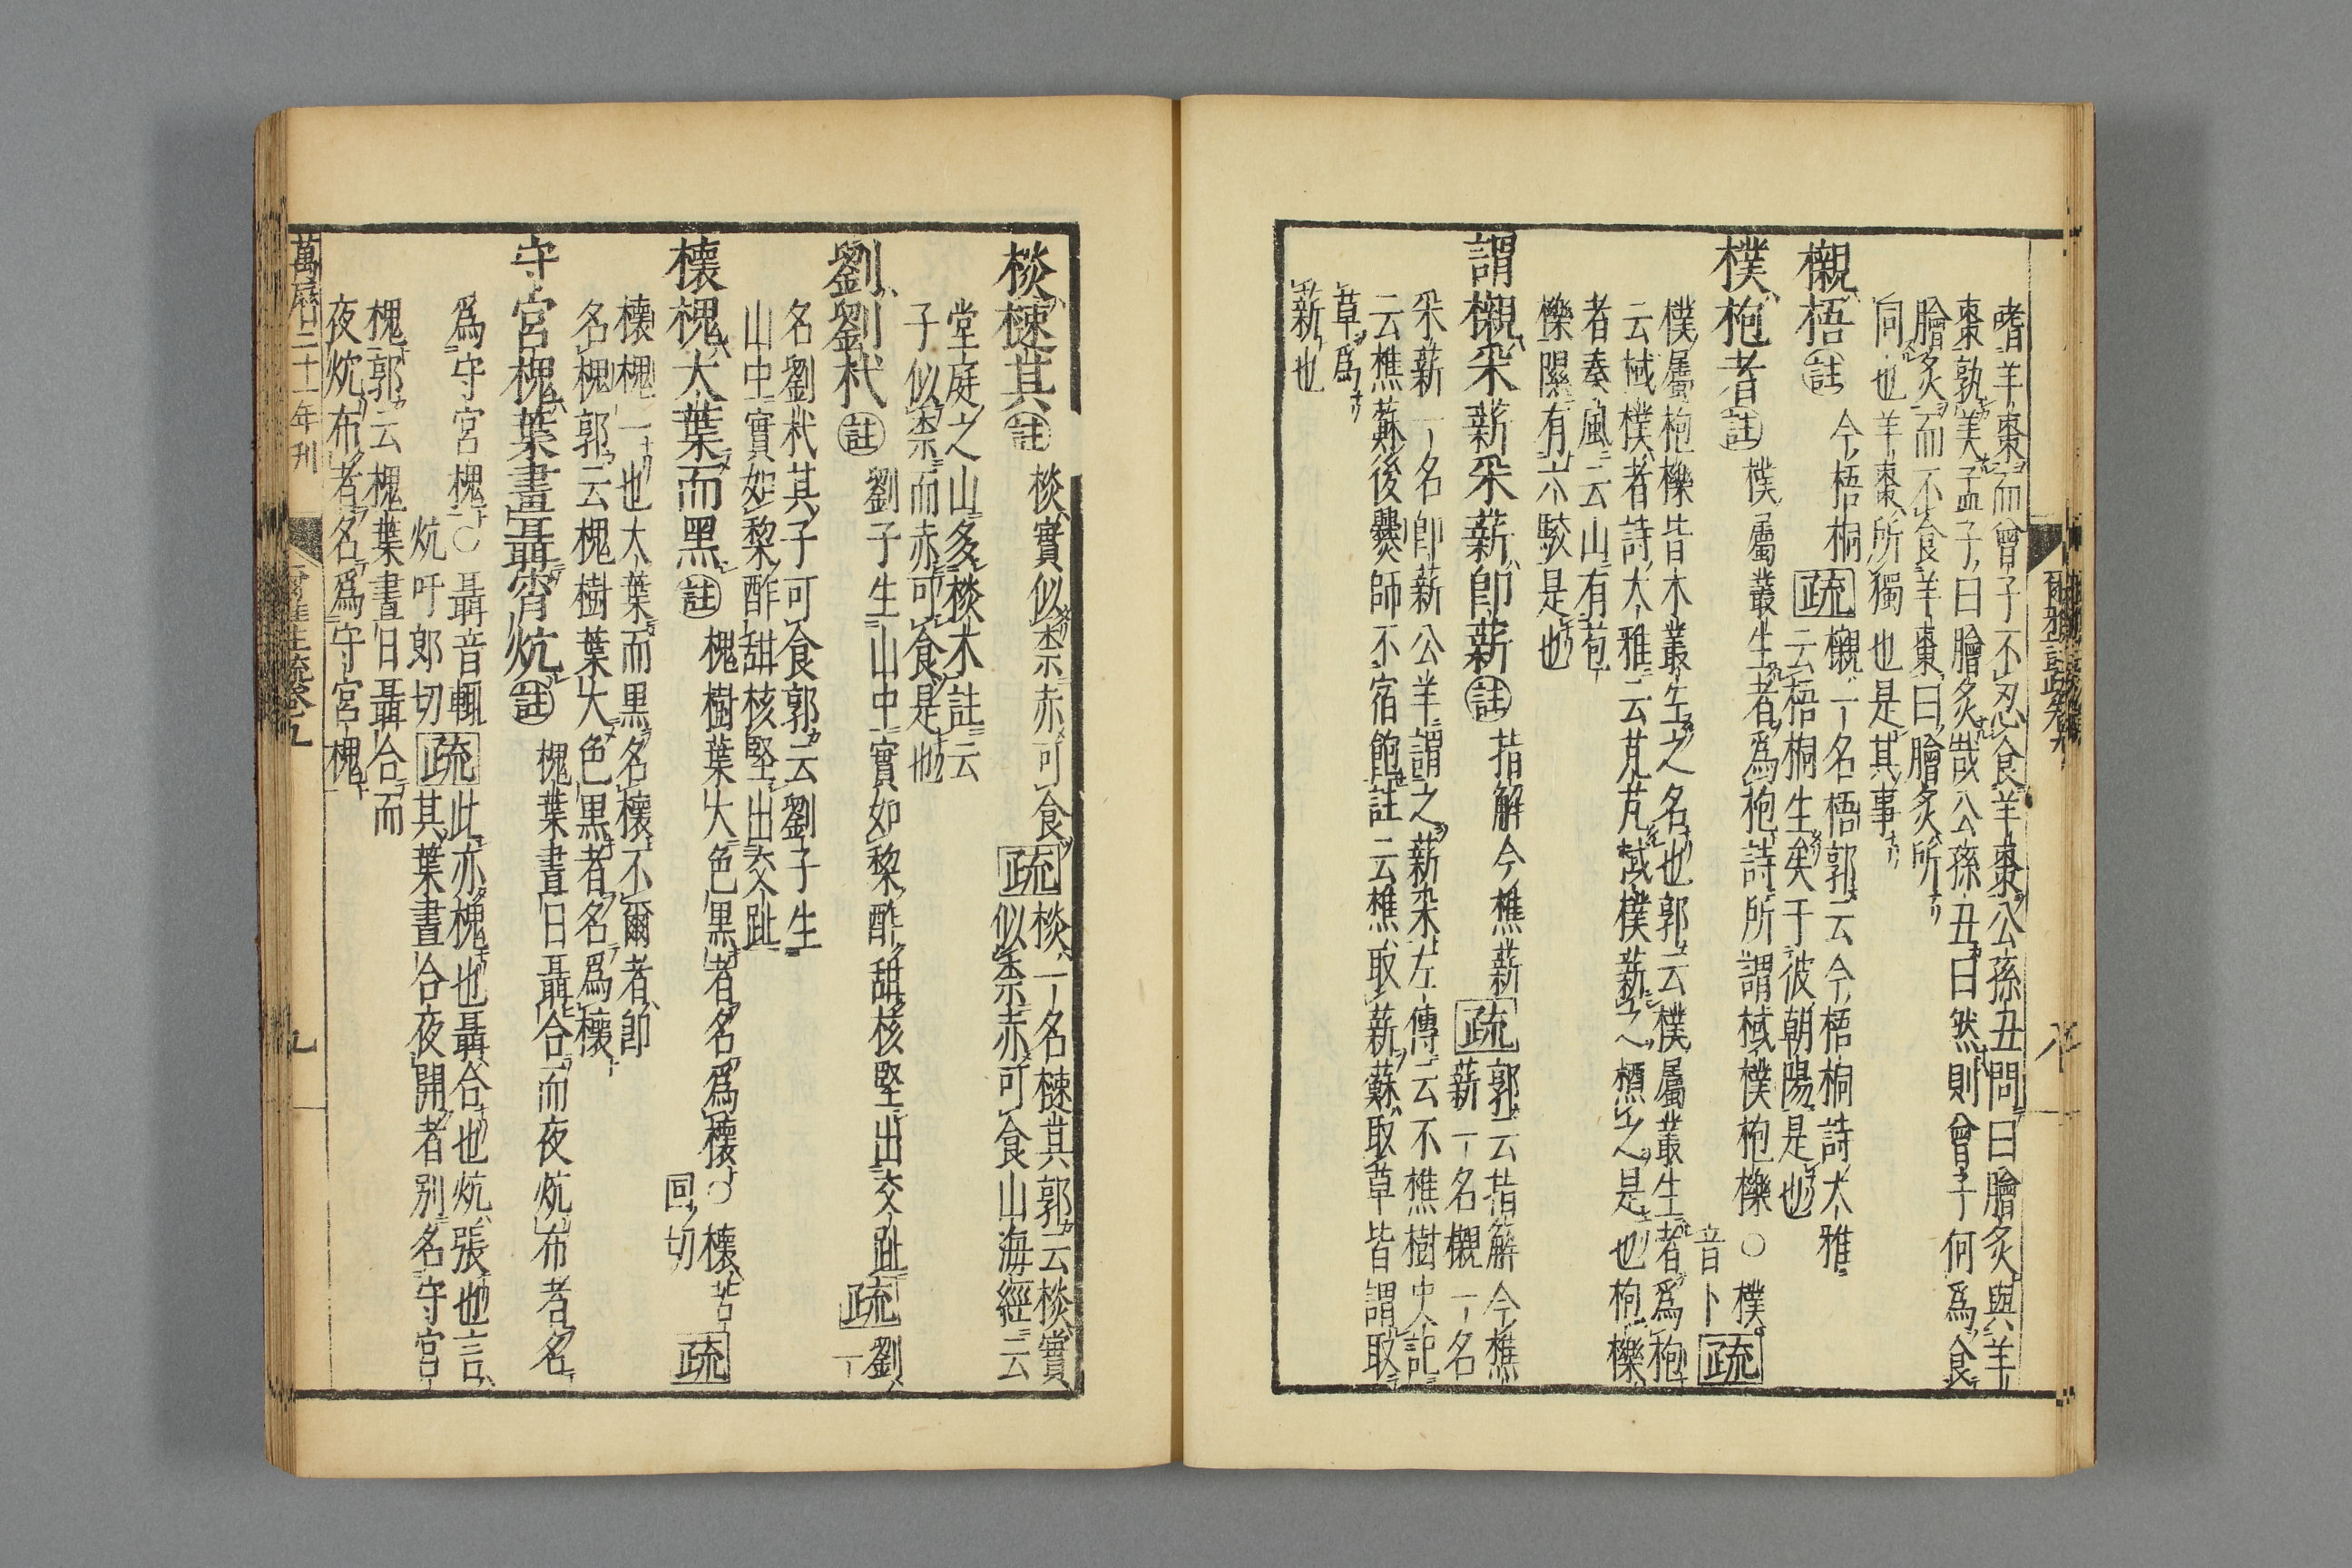 嗜羊棗而曾子不忍食羊棗公孫丑問曰膾炙與羊
棗孰美孟子曰膾炙哉公孫丑曰然則曾子何爲食
膾炙而不食羊棗曰膾炙所
同也羊棗所獨也是其事
櫬梧註
今梧桐
疏
櫬一名梧郭云今梧桐詩大雅
云梧桐生矣于彼朝陽是也
樸枹者註
樸屬叢生者爲枹詩所謂棫樸枹櫟○樸
音卜
疏
樸屬枹櫟皆木叢生之名也郭云樸屬叢生者爲枹
云棫樸者詩大雅云芃芃棫樸薪之槱之是也枹櫟
者秦風云山有苞
櫟隰有六駮是也
謂櫬采薪采薪卽薪註
指解今樵薪
疏
郭云指解今樵
薪一名櫬一名
采薪一名卽薪公羊謂之薪采左傳云不樵樹史記
云樵蘇後爨師不宿飽註云樵取薪蘇取草皆謂取
草爲
薪也
爾雅註疏卷九
八
棪樕其註
棪實似柰赤可食
疏
棪一名樕其郭云棪實
似柰赤可食山海經云
堂庭之山多棪木註云
子似柰而赤可食是也
劉劉杙註
劉子生山中實如梨酢甜核堅出交趾
疏
劉
一
名劉杙其子可食郭云劉子生
山中實如梨酢甜核堅出交趾
櫰槐大葉而黑註
槐樹葉大色黑者名爲櫰○櫰苦
回切
疏
櫰槐一也大葉而黑名櫰不爾者卽
名槐郭云槐樹葉大色黑者名爲櫰
守宮槐葉晝聶宵炕註
槐葉晝日聶合而夜炕布者名
爲守宮槐○聶音輒
炕吁郎切
疏
此亦槐也聶合也炕張也言
其葉晝合夜開者別名守宮
槐郭云槐葉晝日聶合而
夜炕布者名爲守宮槐
萬曆二十一年刊
爾雅註疏卷九
九